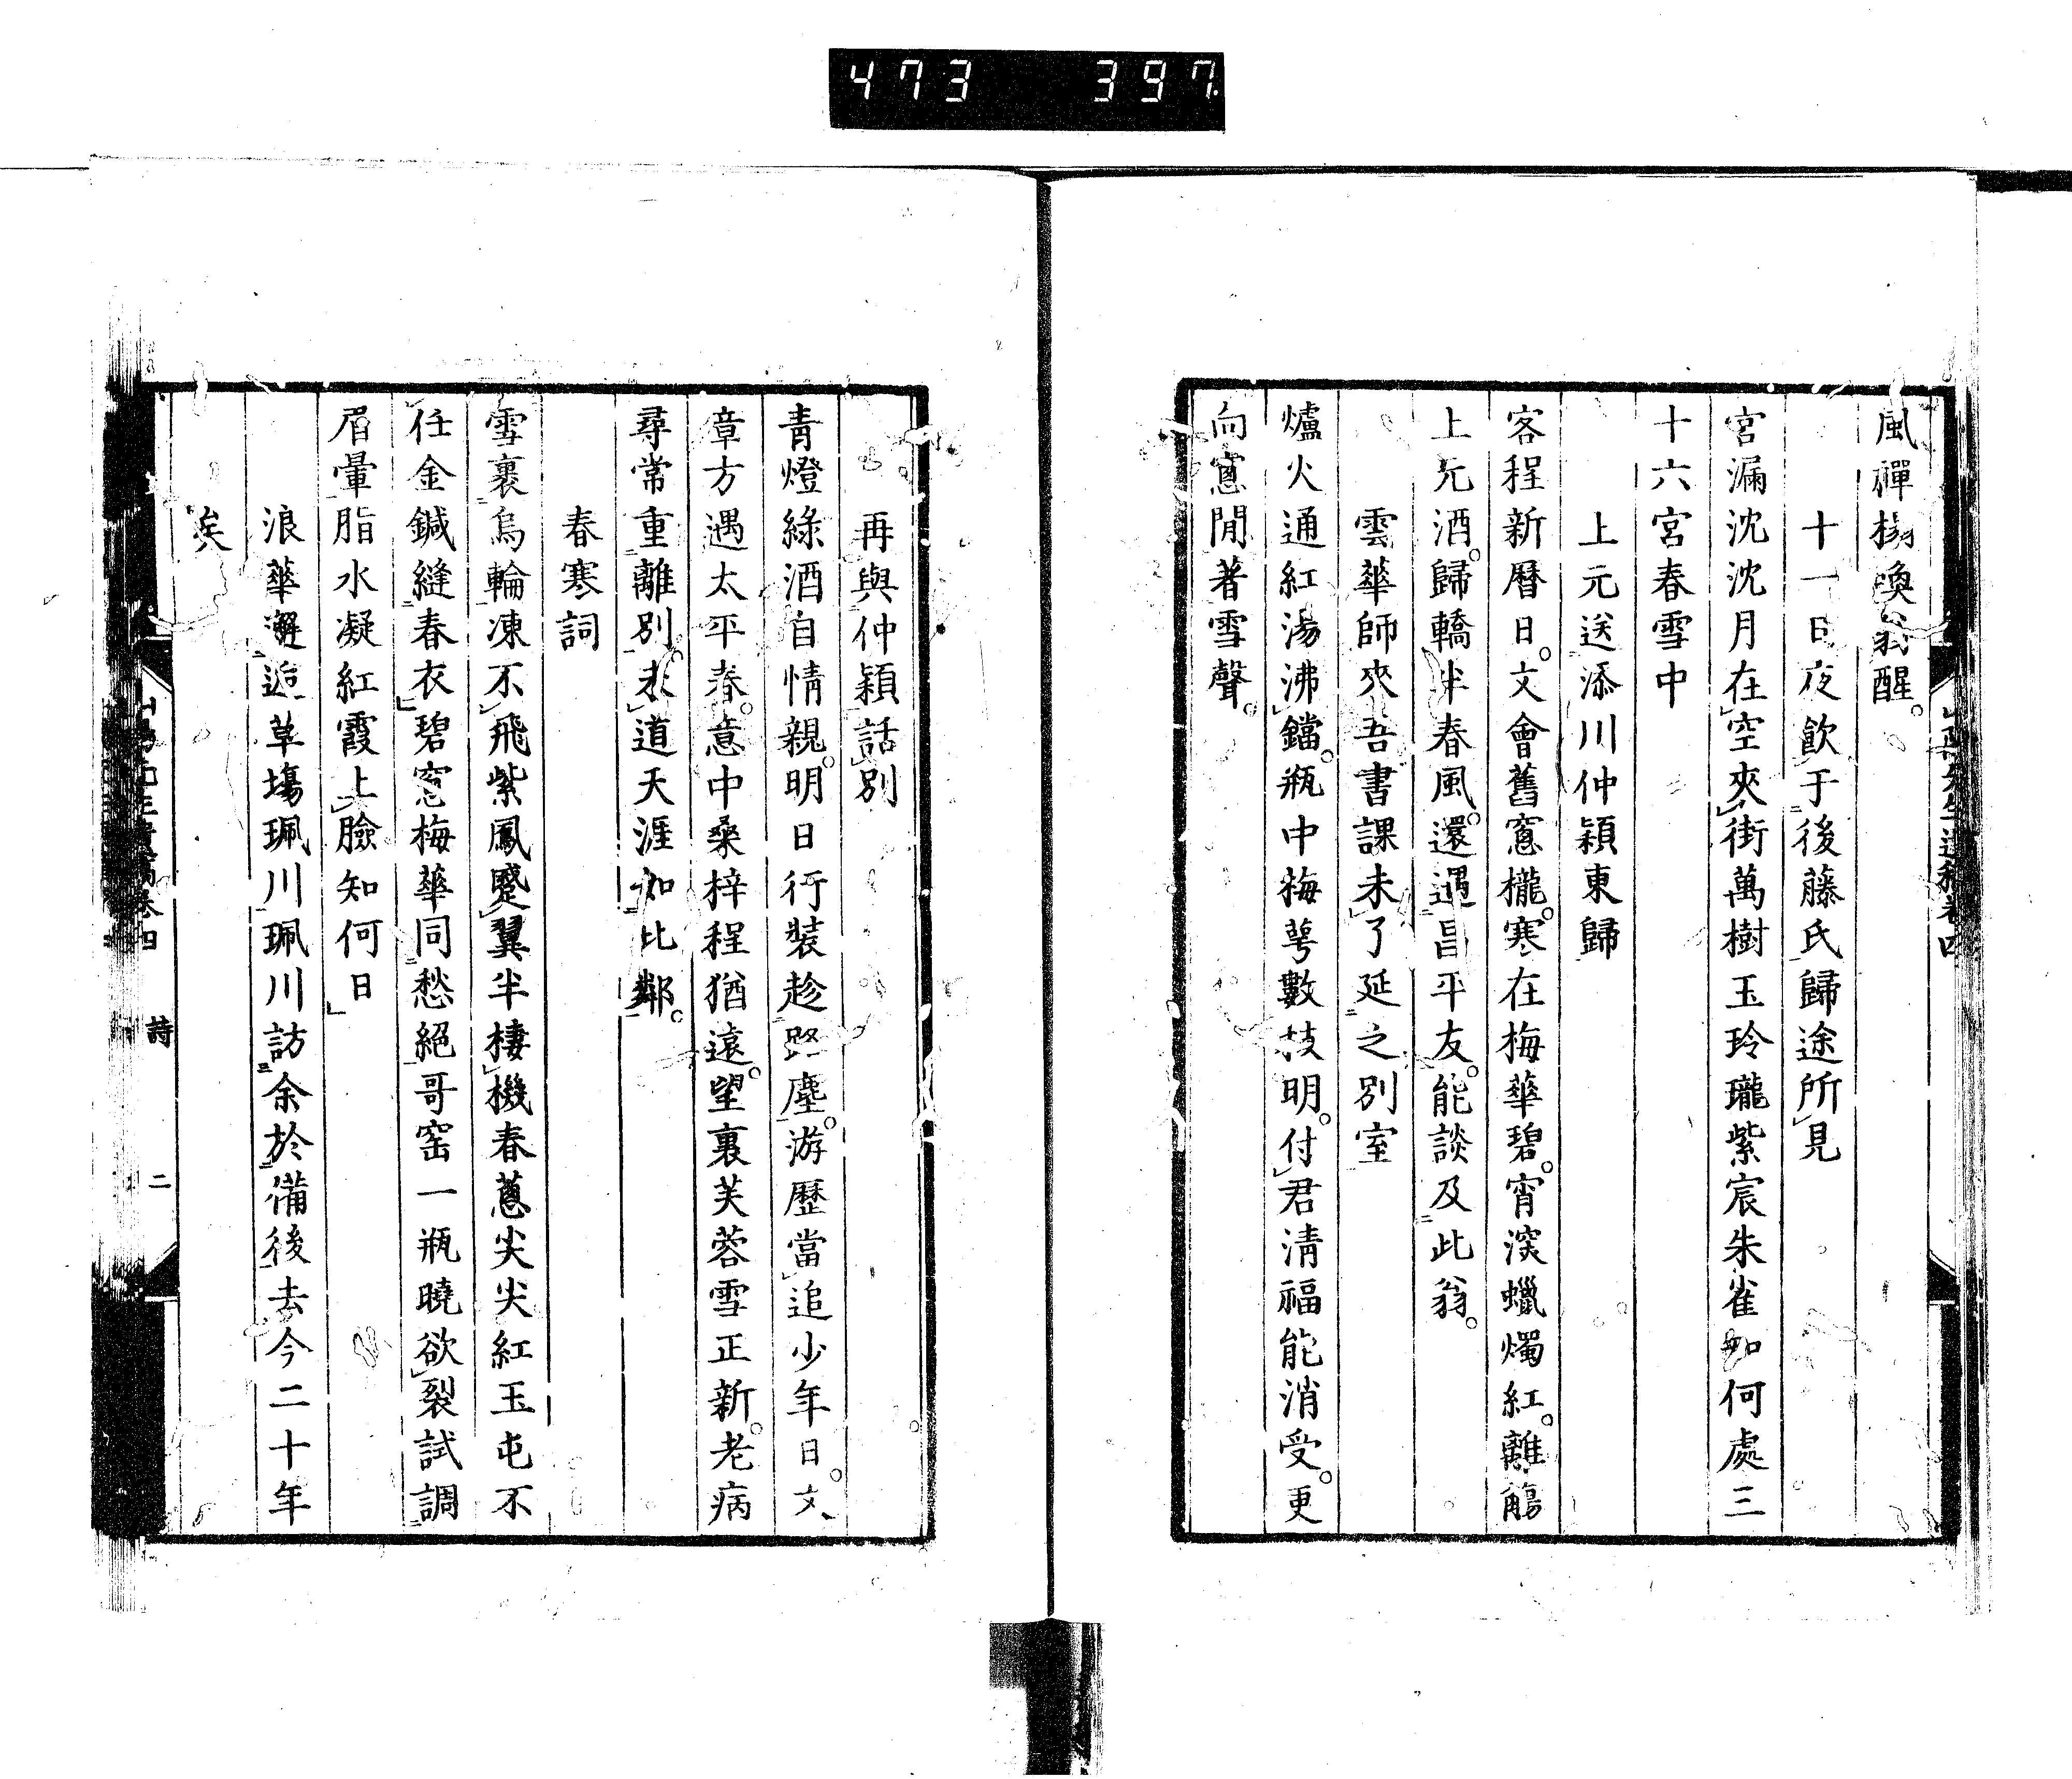 473 397
風禪榻喚翁醒。
十一日夜飮于後藤氏歸途所見
宮漏沈沈月在空夾街萬樹玉玲瓏紫宸朱雀如何處三
十六宮春雪中
上元送添川仲穎東歸
客程新曆日。文會舊窻櫳。寒在梅華碧。宵深蠟燭紅。離觴
上元酒。歸轎半春風。還遇昌平友。能談及此翁。
雲華師來吾書課未了延之別室
爐火通紅湯沸鐺。瓶中梅萼數枝明。付君淸福能消受。更
向窻閒著雪聲。
再與仲穎話別
靑燈綠酒自情親。明日行裝趁路塵。游歷當追少年日。文
章方遇太平春。意中桑梓程猶遠。望裏芙蓉雪正新。老病
尋常重離別。未道天涯如比鄰。
春寒詞
雪裏烏輪凍不飛紫鳳蹙翼半棲機春蔥尖尖紅玉屯不
任金鍼縫春衣碧窻梅華同愁絕哥窑一瓶曉欲裂試調
眉暈脂水凝紅霞上臉知何日
浪華邂逅草場珮川珮川訪余於備後去今二十年
矣
詩
二